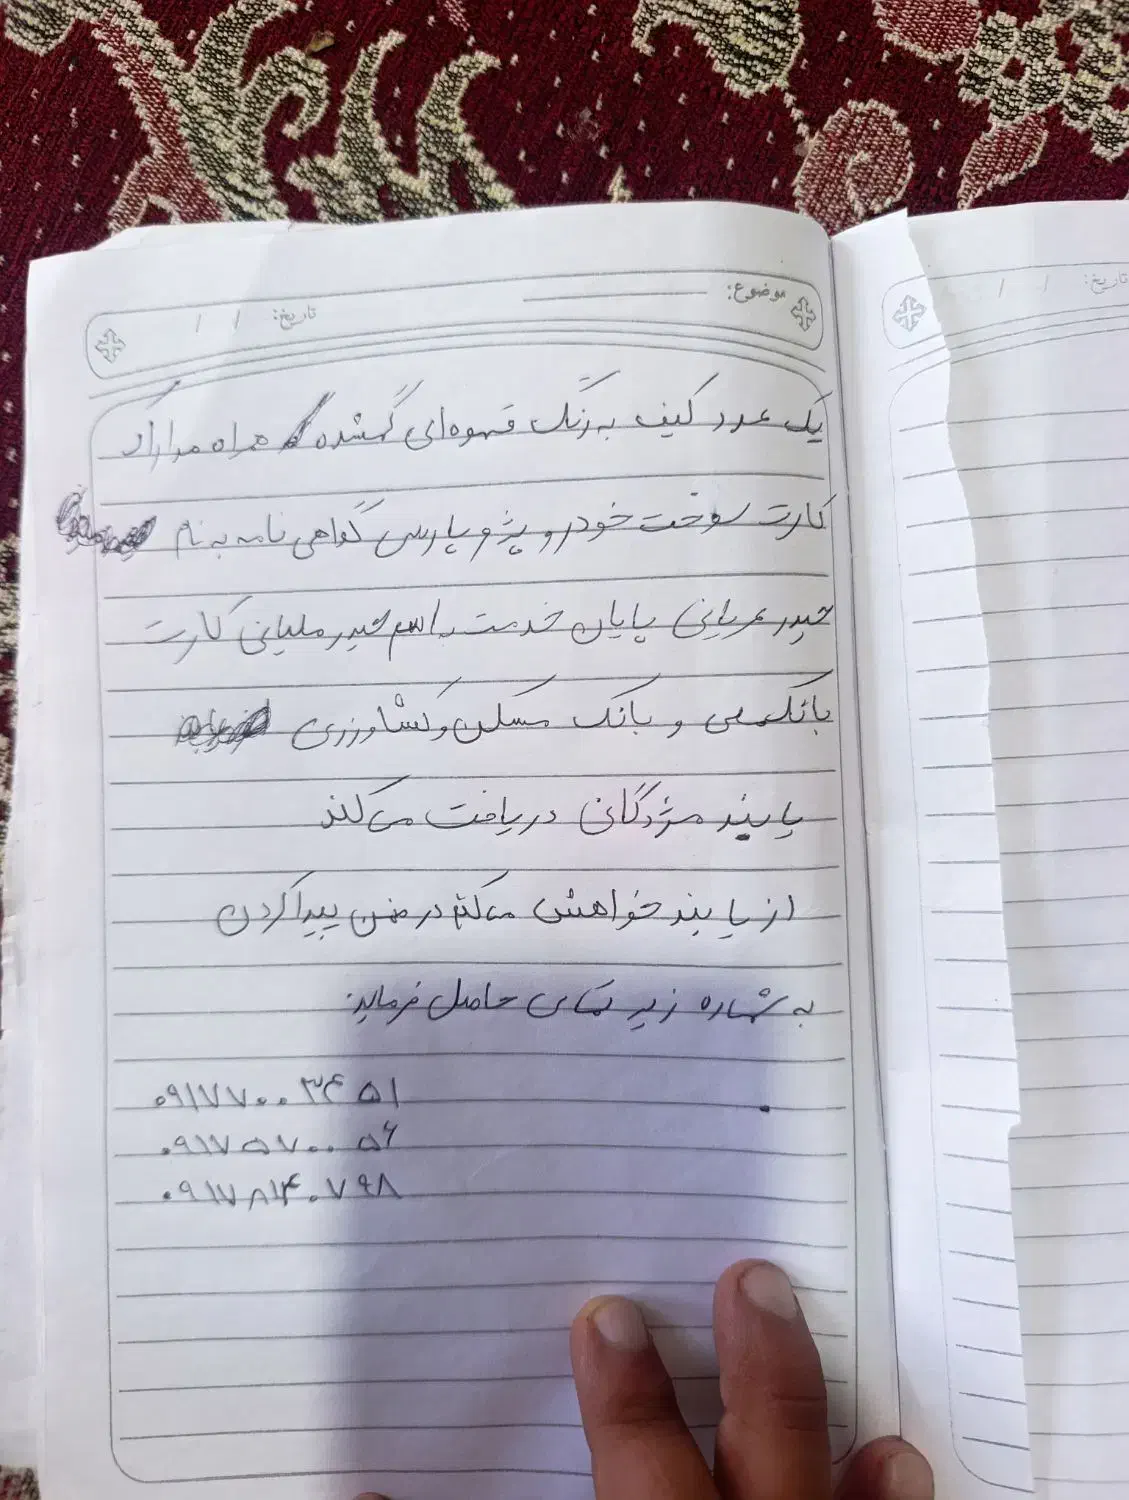 موضوع:
تاریخ: / /
تاریخ: / /
یک عدد کیف به رنگ قهوه‌ای گمشده همراه مدارک
کارت سوخت خودرو پژو پارس گواهی نامه به نام
حیدر عربانی پایان خدمت به اسم حیدر ملیانی کارت
بانک ملی و بانک مسکن و کشاورزی
یابند مژدگانی دریافت می‌کند
از یابند خواهش می‌کنم در ضمن پیدا کردن
به شماره زیر تماس حاصل فرماید
۰۹۱۷۷۰۰۳۴۵۱
۰۹۱۷۵۷۰۰۵۶
۰۹۱۷۸۱۴۰۷۹۸